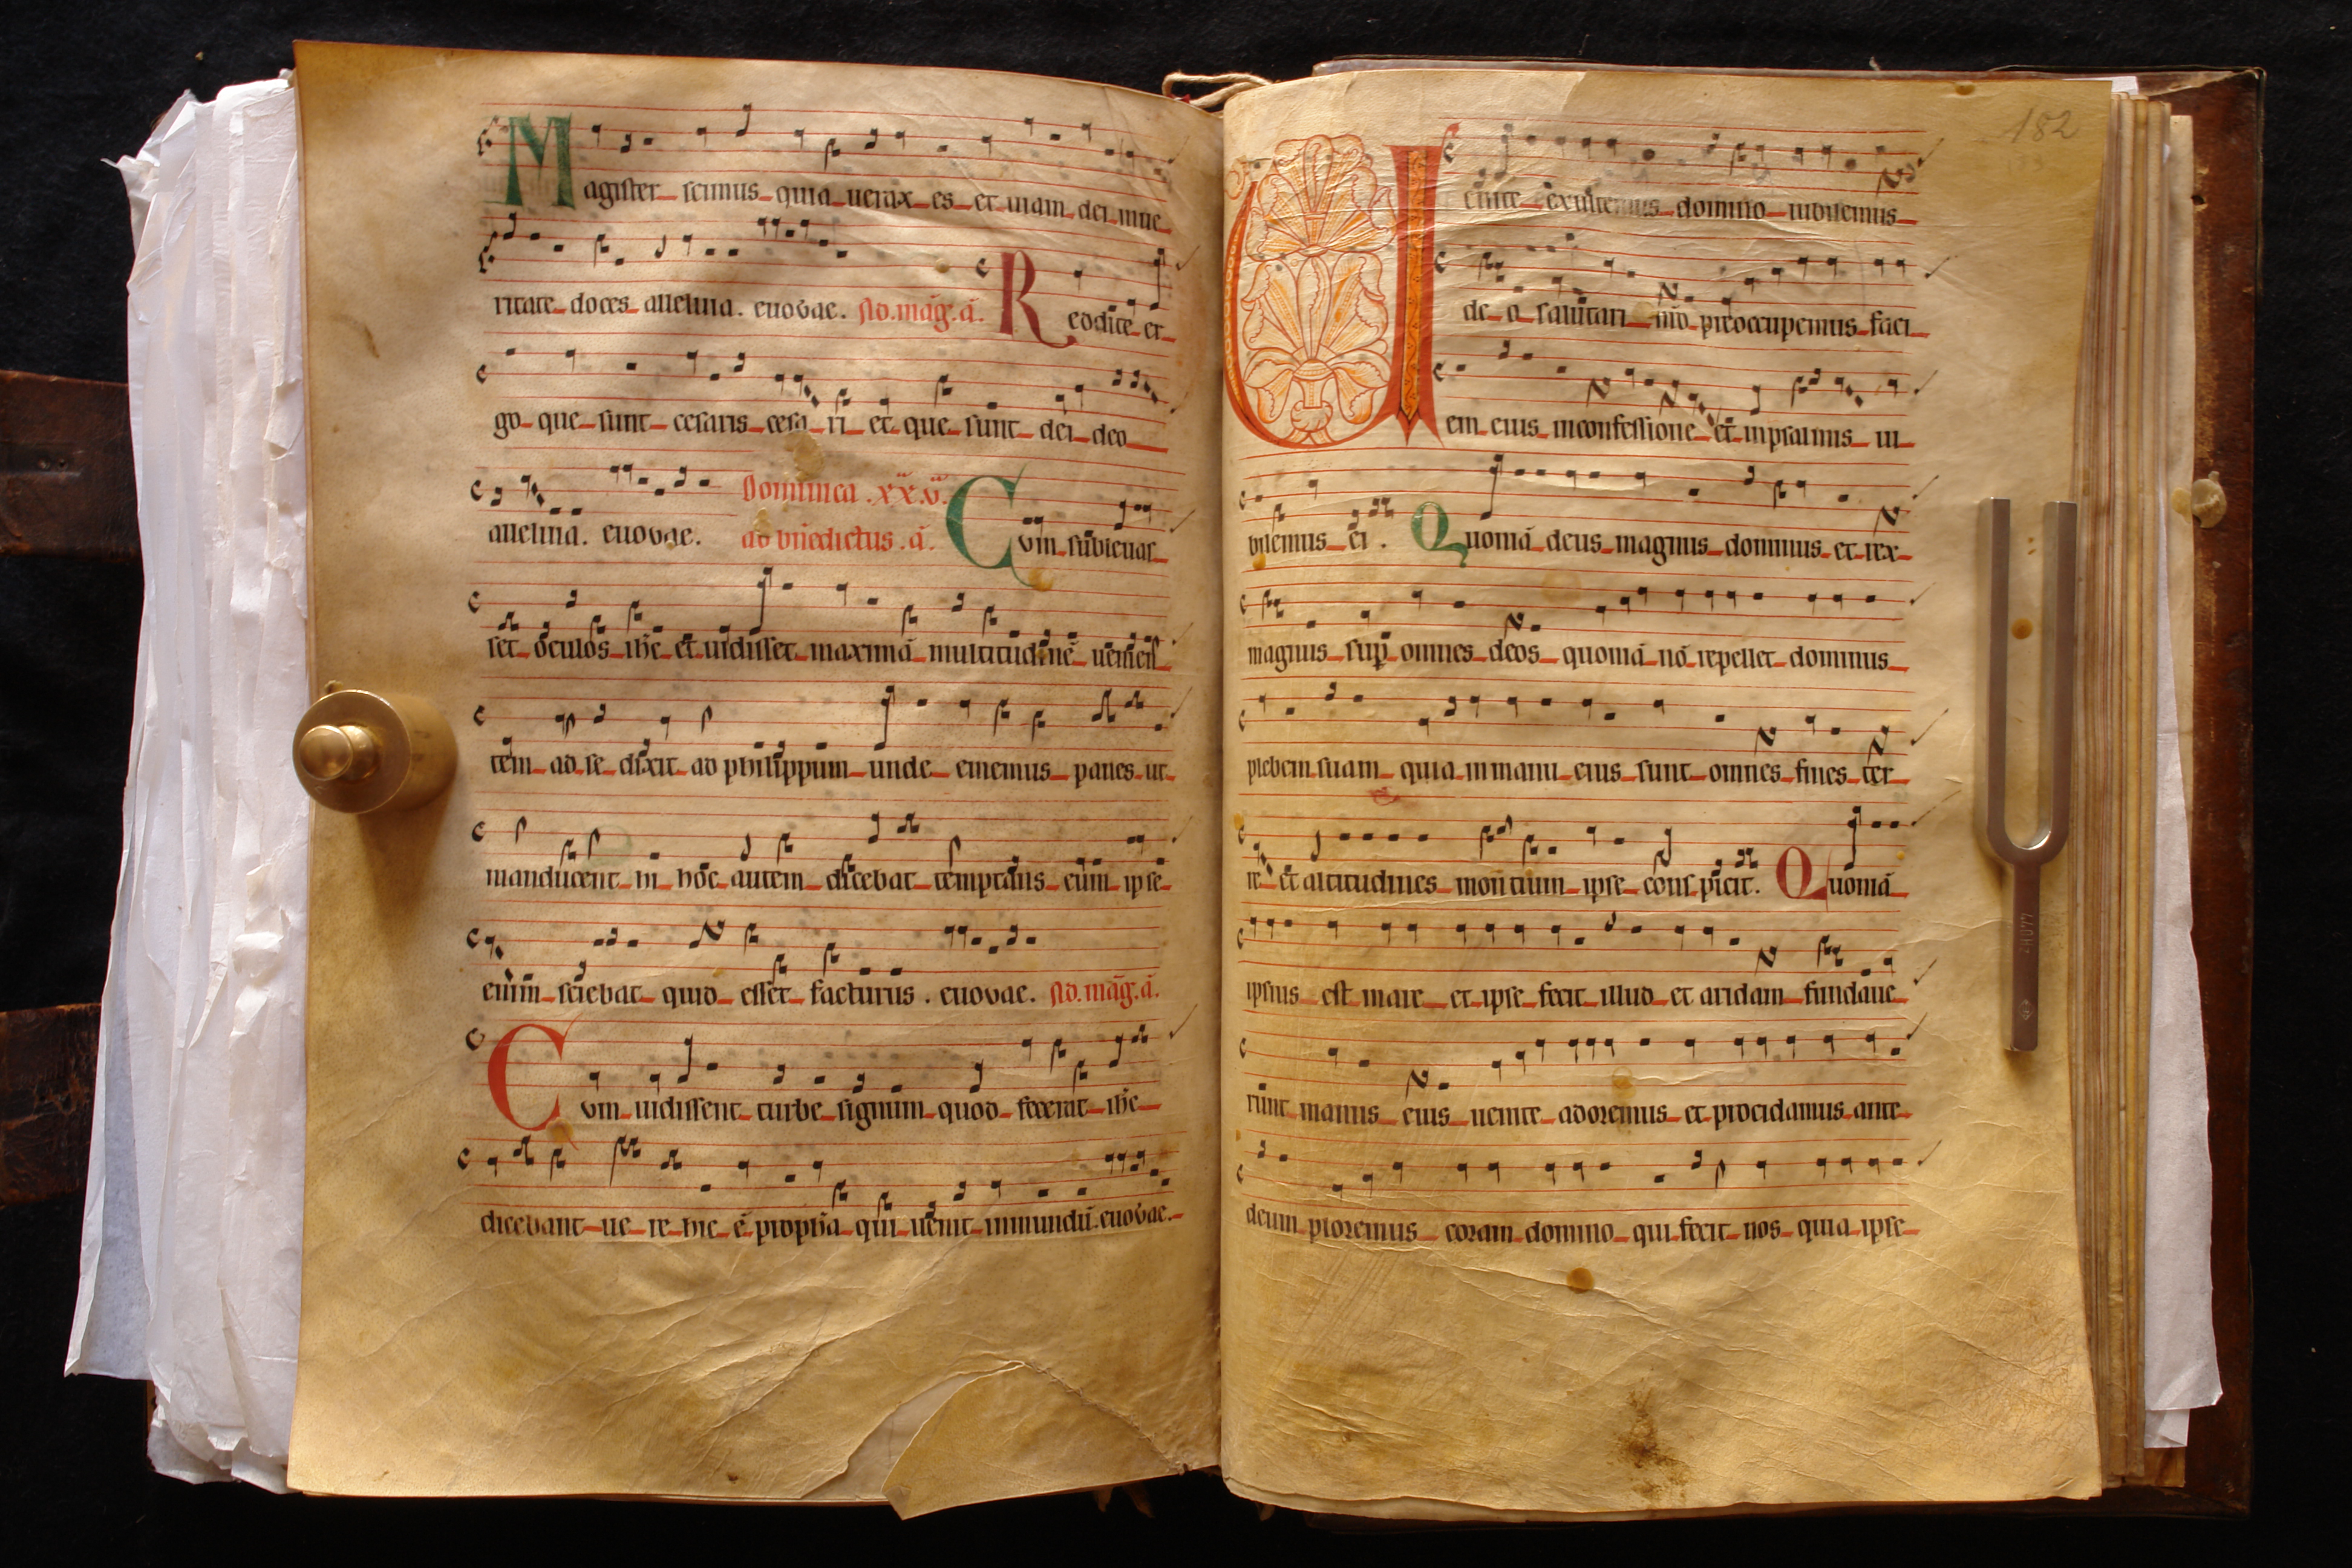 Magister scimus quia uerax es et uiam dei inue
ritate doces alleluia. euouae. Ad.māg.ā. Reddite er
go que sunt cesaris cesari et que sunt dei deo
alleluia. euouae. Dominca .xx.v. Cum subleuas
ad bn̄edictus .ā.
set oculos ih̄c et uidisset maximā multitudinē uenien
tem ad se dixit ad philippum unde ememus panes ut
manducent hi hoc autem dicebat temptans eum ipse
enim sciebat quid esset facturus . euouae. Ad.māg.ā.
Cum uidissent turbe signum quod fecerat ih̄c
dicebant uere hic ē prophā qui uenit inmundū.euouae.
182
Uenite exultemus domino iubilemus
deo salutari nr̄o preoccupemus faci
em eius inconfessione et inpsalmis iu
bilemus ei . Quoniā deus magnus dominus et rex
magnus sup̄ omnes deos quoniā nō repellet dominus
plebem suam quia inmanu eius sunt omnes fines ter
re et altitudines montium ipse conspicit. Quoniā
ipsius est mare et ipse fecit illud et aridam fundaue
runt manus eius uenite adoremus et procidamus ante
deum ploremus coram domino qui fecit nos quia ipse